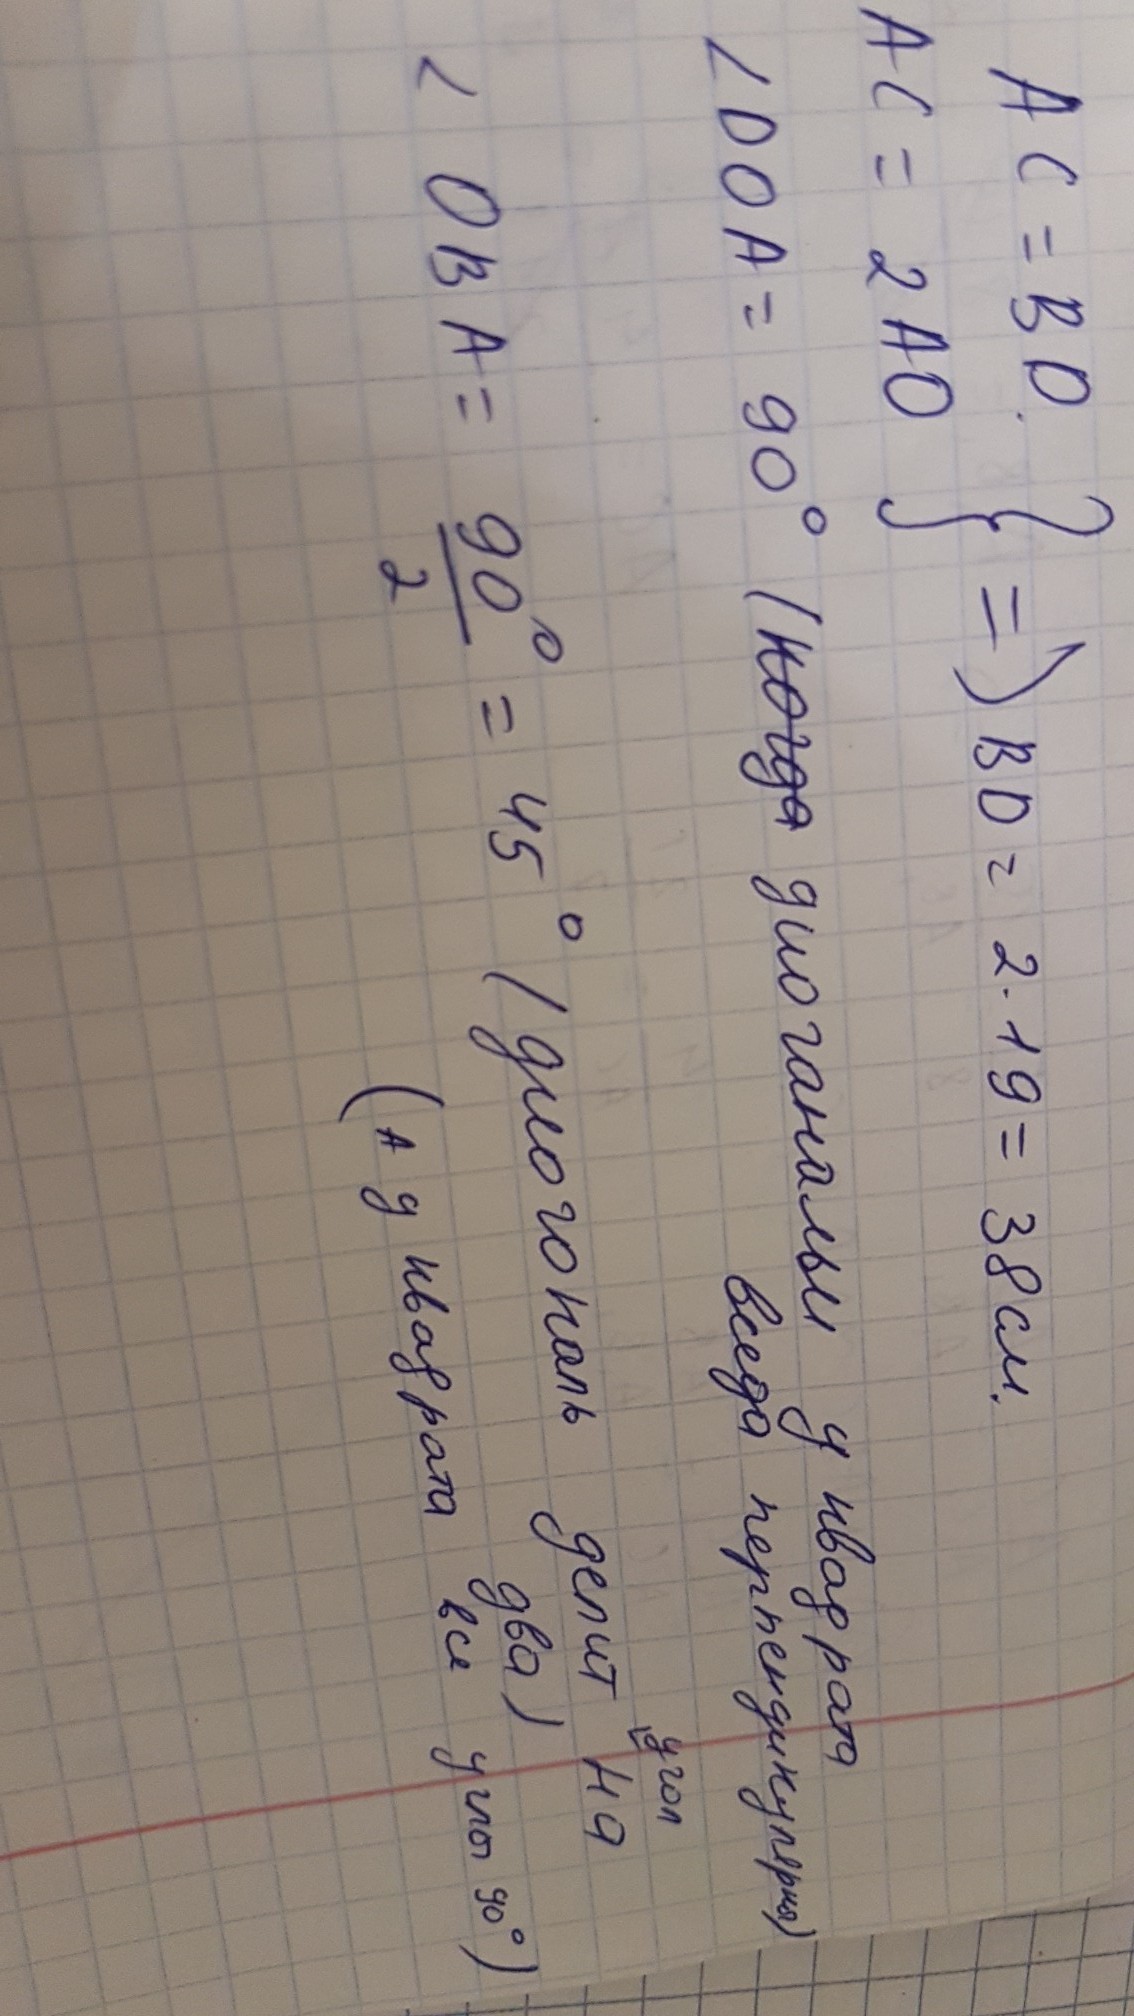 AC = BD
AC = 2AO } => BD = 2·19 = 38 см.
∠DOA = 90° (когда диоганальы у квадрата
всегда перпендикулярны)
угол
∠OBA = 90°/2 = 45° (диогональ делит на
два)
(А у квадрата все углы 90°)